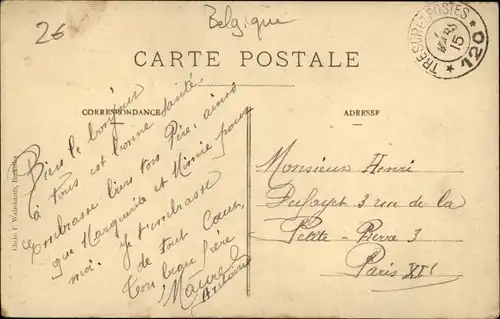 2€
Belgique
TRESOR ET POSTES
MARS
15
* 120 *
CARTE POSTALE
CORRESPONDANCE
ADRESSE
Bien le bonjour
à tous est bonne santé.
Embrasse bien ton Père, ainsi
que Marguerite et Mimie pour
moi. Je t'embrasse
de tout Coeur,
Ton beau frère
Maurel
Antoine
Monsieur Henri
3 rue de la
Petite - Pierre 3
Paris XIe